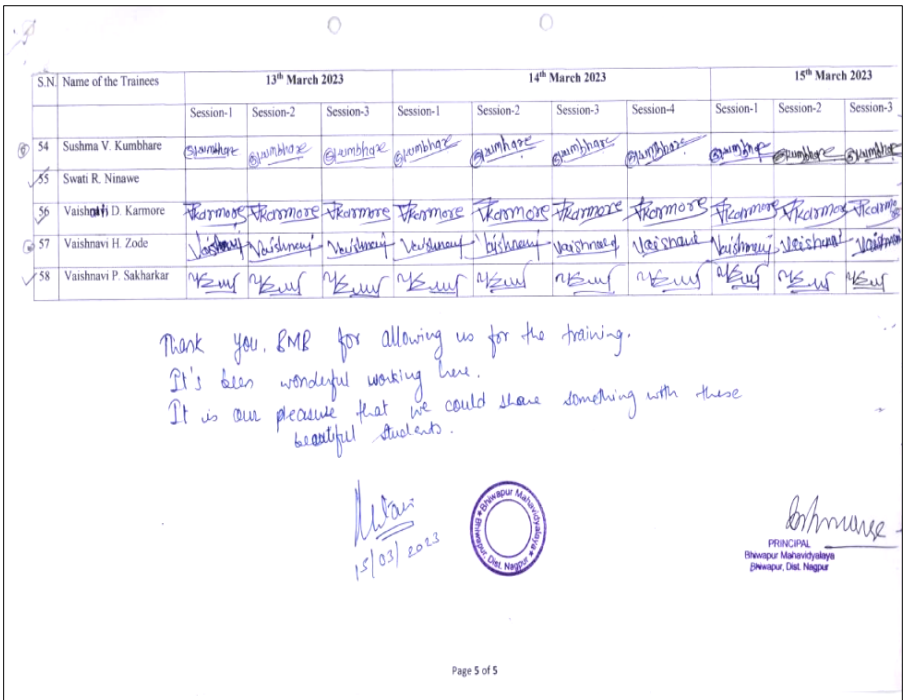 S.N. Name of the Trainees 13th March 2023 14th March 2023 15th March 2023
Session-1 Session-2 Session-3 Session-1 Session-2 Session-3 Session-4 Session-1 Session-2 Session-3
54 Sushma V. Kumbhare
55 Swati R. Ninawe
56 Vaishnavi D. Karmore Vkarmore Vkarmore Vkarmore Vkarmore Vkarmore Vkarmore Vkarmore Vkarmore Vkarmore
57 Vaishnavi H. Zode Vaishnavi Vaishnavi Vaishnavi Vaishnavi Vaishnavi Vaishnavi Vaishnavi Vaishnavi Vaishnavi
58 Vaishnavi P. Sakharkar
Thank you, BMB for allowing us for the training.
It's been wonderful working here.
It is our pleasure that we could share something with these
beautiful students.
15/03/2023
Bhiwapur Mahavidyalaya
Bhiwapur, Dist. Nagpur
PRINCIPAL
Bhiwapur Mahavidyalaya
Bhiwapur, Dist. Nagpur
Page 5 of 5